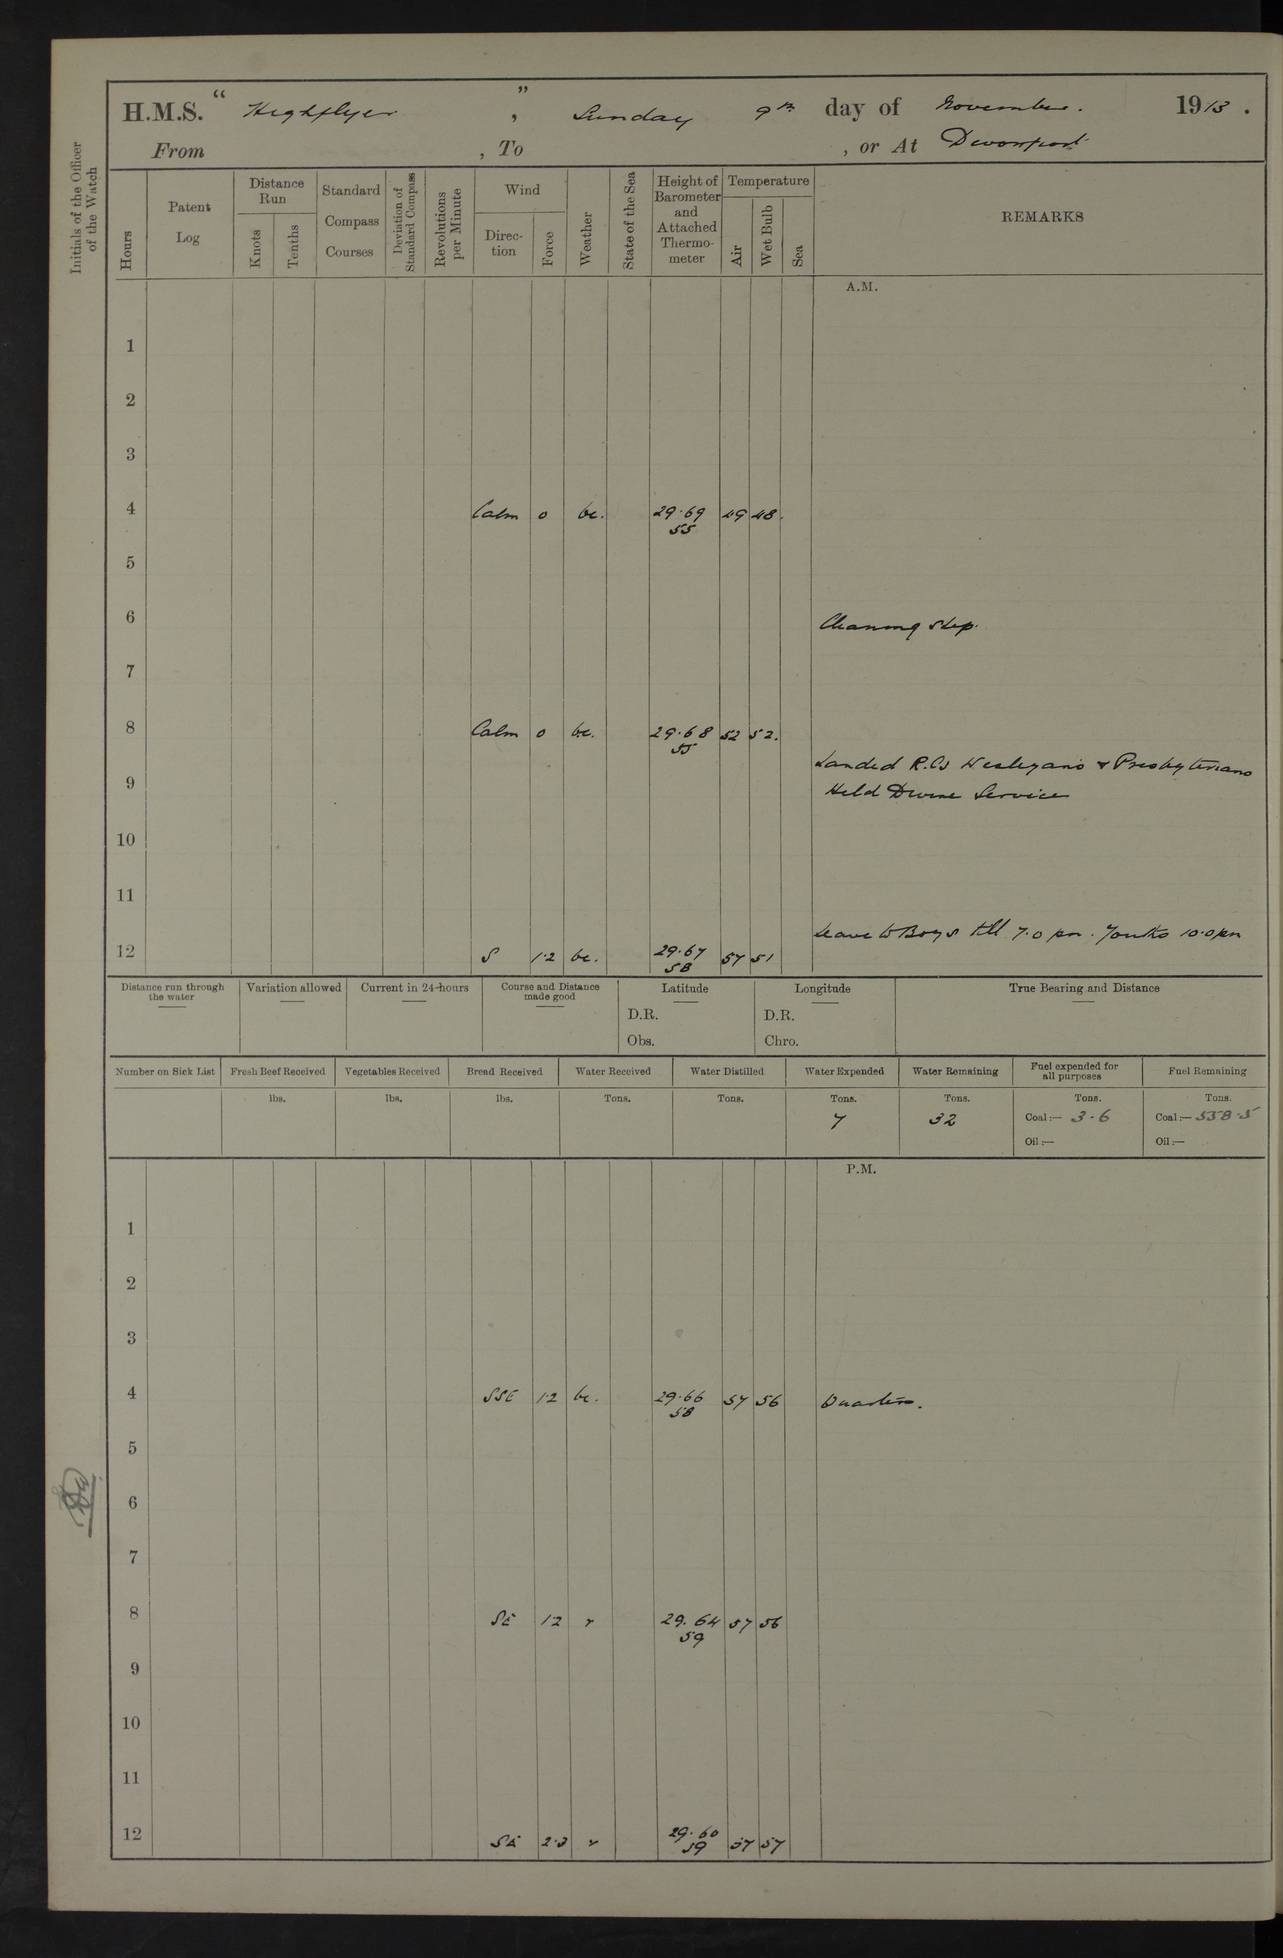 H.M.S. “ Highflyer ”, Sunday 9th day of November. 1913.
From , To , or At Devonport
Initials of the Officer of the Watch
Hours Patent Log Distance Run Knots Tenths Standard Compass Courses Deviation of Standard Compass Revolutions per Minute Wind Direction Force Weather State of the Sea Height of Barometer and Attached Thermometer Temperature Air Wet Bulb Sea REMARKS
A.M.
1
2
3
4 Calm 0 bc. 29.69 49 48.
55
5
6 Cleaning Ship.
7
8 Calm 0 bc. 29.68 52 52.
55
Landed R.Cs Wesleyans & Presbyterians
9 Held Divine Service
10
11
Leave to Boys till 7.0 pm. Youths 10.0 pm
12 S 1.2 bc. 29.67 57 51
58
Distance run through the water Variation allowed Current in 24-hours Course and Distance made good Latitude Longitude True Bearing and Distance
D.R. D.R.
Obs. Chro.
Number on Sick List Fresh Beef Received Vegetables Received Bread Received Water Received Water Distilled Water Expended Water Remaining Fuel expended for all purposes Fuel Remaining
lbs. lbs. lbs. Tons. Tons. Tons. Tons. Tons. Tons.
7 32 Coal :— 3.6 Coal :— 538.5
Oil :— Oil :—
P.M.
1
2
3
4 SSE 1.2 bc. 29.66 57 56 Quarters.
58
5
6
7
8 SE 1 2 r 29.64 57 56
59
9
10
11
12 SE 2.3 r 29.60 57 57
59